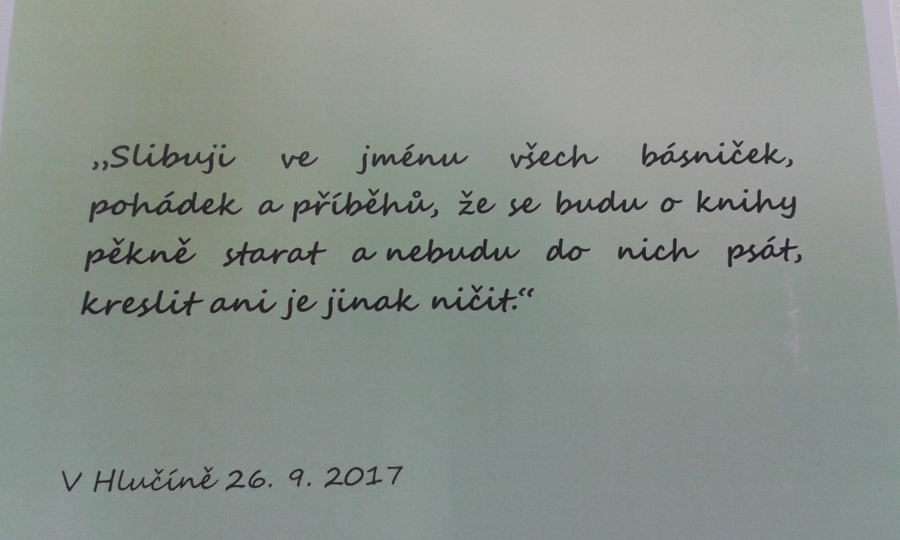 „Slibuji ve jménu všech básniček,
pohádek a příběhů, že se budu o knihy
pěkně starat a nebudu do nich psát,
kreslit ani je jinak ničit.“
V Hlučíně 26. 9. 2017